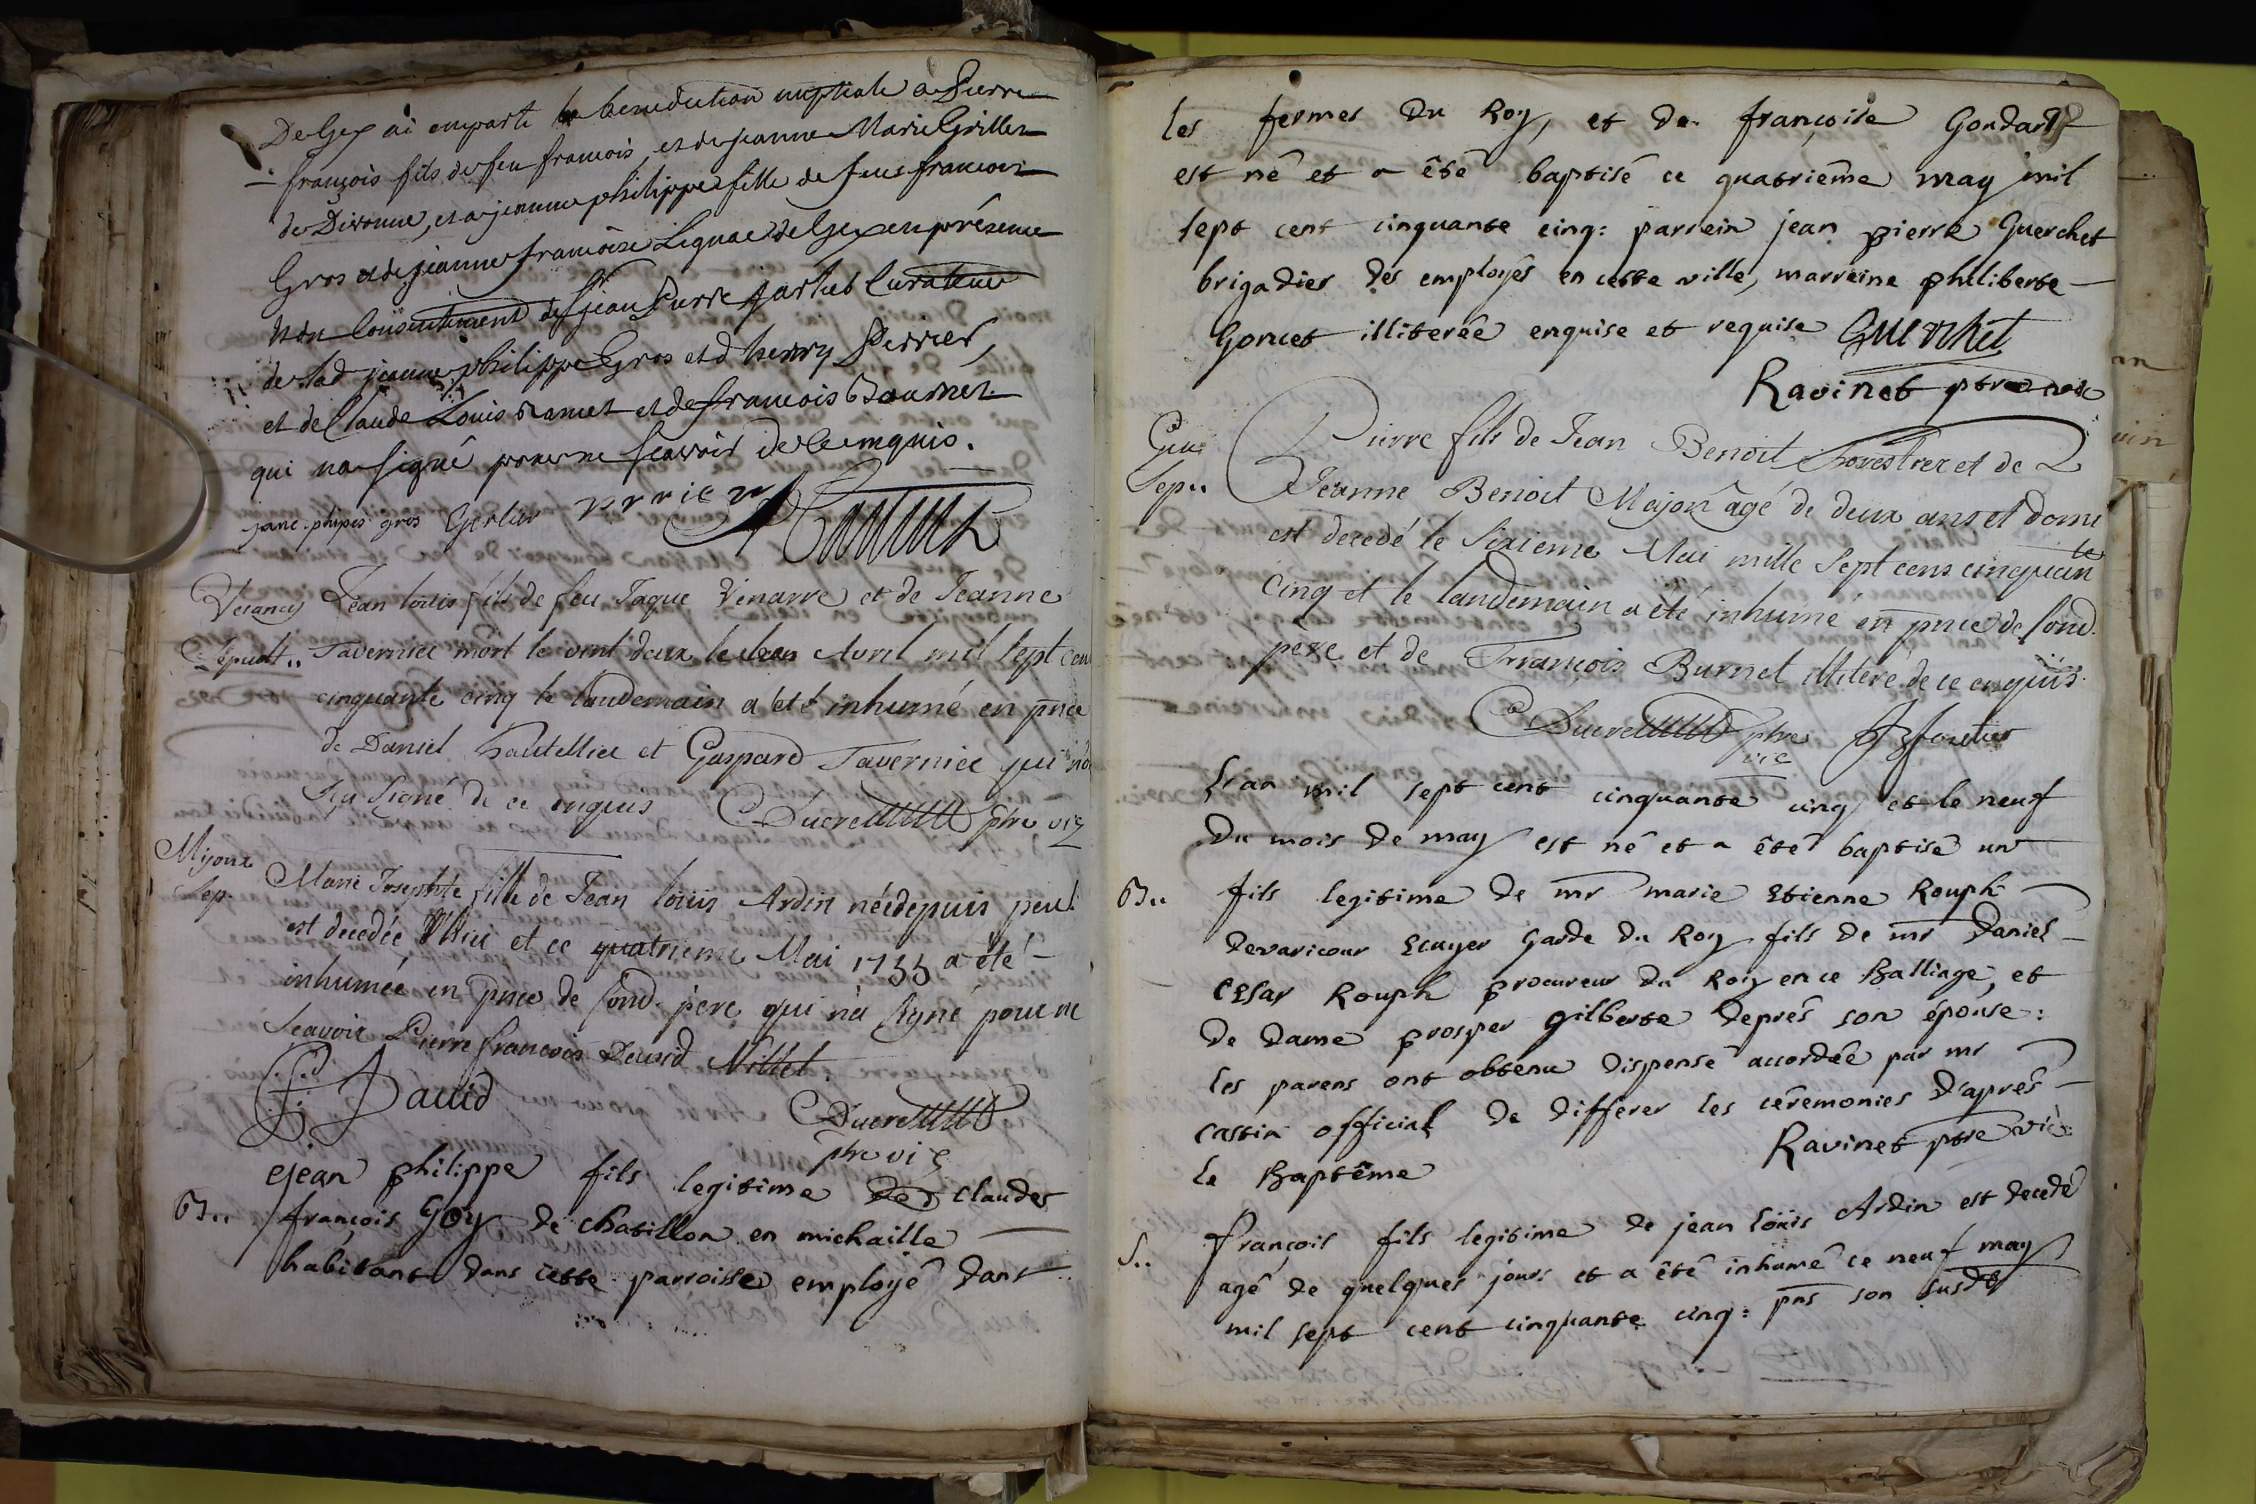 De Gex ai emparti la benediction nuptiale a Pierre
françois fils de feu francois et de jeanne Marie Grillet
de Divonne, et a jeanne philippe fille de feu francois
Gros et de jeanne francoise Lignac de Gex en présence
du consentement de Sr jean Pierre Curateur
de lad jeanne philippe Gros et d henry Perrier,
et de Claude Louis Ramet et de francois Bournet
qui na signé pour ne scavoir de ce enquis.
jane phipes gros Gerlier prrier
Vesancy Jean loüis fils de feu Jaque Venarre et de Jeanne
Sepult.. Tavernier mort le vint deux Avril mil sept cen
cinquante cinq le landemain a été inhumé en pnce
de Daniel hautellier et Gaspard Tavernier qui n'on
scu signé de ce enquis Ducret ptre vic
Mijoux Marie Josephte fille de Jean loüis Ardin née depuis peu
Sep. est decedée et ce quatrieme Mai 1755 a été
inhumée en pnce de sond. pere qui n'a signé pour ne
scavoir Pierre francois David Millet.
P. F. David Ducret
ptre vic
jean philippe fils legitime de claude
B.. françois Goy de chatillon en michaille
habitant dans cette parroisse employé dans
les fermes Du Roy, et de françoise Goudard
est né et a été baptisé ce quatriême may mil
sept cent cinquante cinq: parrein jean pierre Guerchet
brigadier des employés en cette ville, marreine philiberte
Goncet illiterée enquise et requise Guerchet
Ravinet ptre vic
Pierre fils de Jean Benoit forestier et de
Sep.. Jeanne Benoit Majon agé de deux ans et dome
est decedé le sixieme Mai mille sept cens cinquante
cinq et le landemain a été inhumé en pnce de sond.
pere et de François Burnet illiteré de ce enquis.
Ducret ptre
vic
L'an mil sept cent cinquante cinq et le neuf
Du mois de may est né et a été baptisé un
B.. fils legitime de mr marie Etienne Rouph
Devaricour Ecuyer Garde Du Roy fils de mr Daniel
Cesar Rouph procureur Du Roy en ce Balliage, et
De Dame prosper Gilberte Deprés son épouse:
les parens ont obtenu Dispense accordée par mr
Castin official De Differer les cérémonies D'aprés
le Baptême Ravinet ptre vic:
François fils legitime de jean loüis Ardin est decedé
S.. agé de quelques jours et a été inhumé ce neuf may
mil sept cent cinquante cinq: pns son susdt